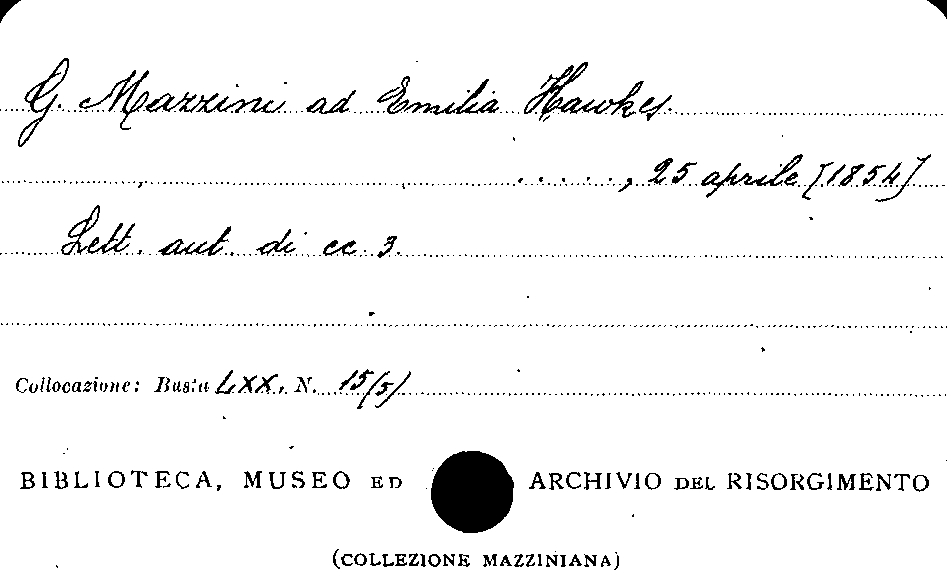 G. Mazzini ad Emilia Hawkes.
. . . . . , 25 aprile [1854]
Lett. aut. di cc. 3.
Collocazione: Busta LXX, N. 15(5)
BIBLIOTECA, MUSEO ED ARCHIVIO DEL RISORGIMENTO
(COLLEZIONE MAZZINIANA)